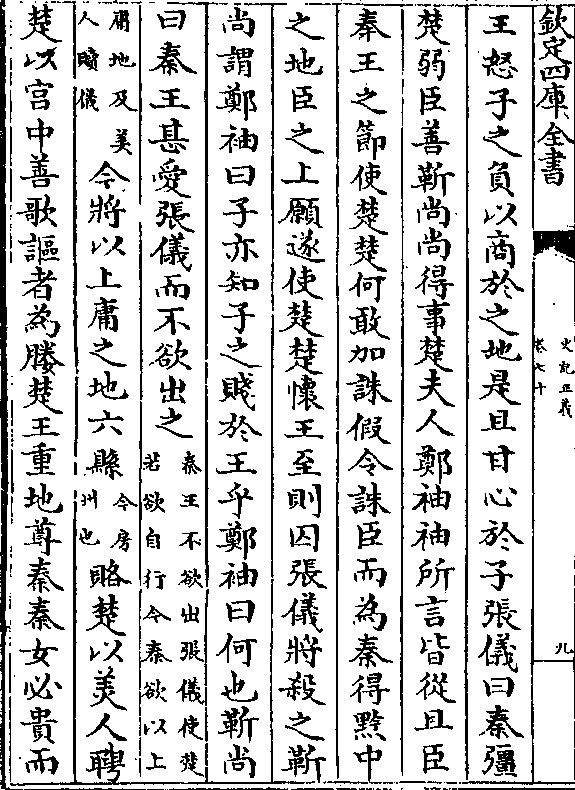 欽定四庫全書
史記正義
卷七十
九
王怒子之負以商於之地是且甘心於子張儀曰秦彊
楚弱臣善靳尚尚得事楚夫人鄭袖袖所言皆從且臣
奉王之節使楚楚何敢加誅假令誅臣而為秦得黔中
之地臣之上願遂使楚楚懷王至則囚張儀將殺之靳
尚謂鄭袖曰子亦知子之賤於王乎鄭袖曰何也靳尚
曰秦王甚愛張儀而不欲出之秦王不欲出張儀使楚若欲自行今秦欲以上
庸地及美人贖儀今將以上庸之地六縣今房州也賂楚以美人聘
楚以宮中善歌謳者為媵楚王重地尊秦秦女必貴而